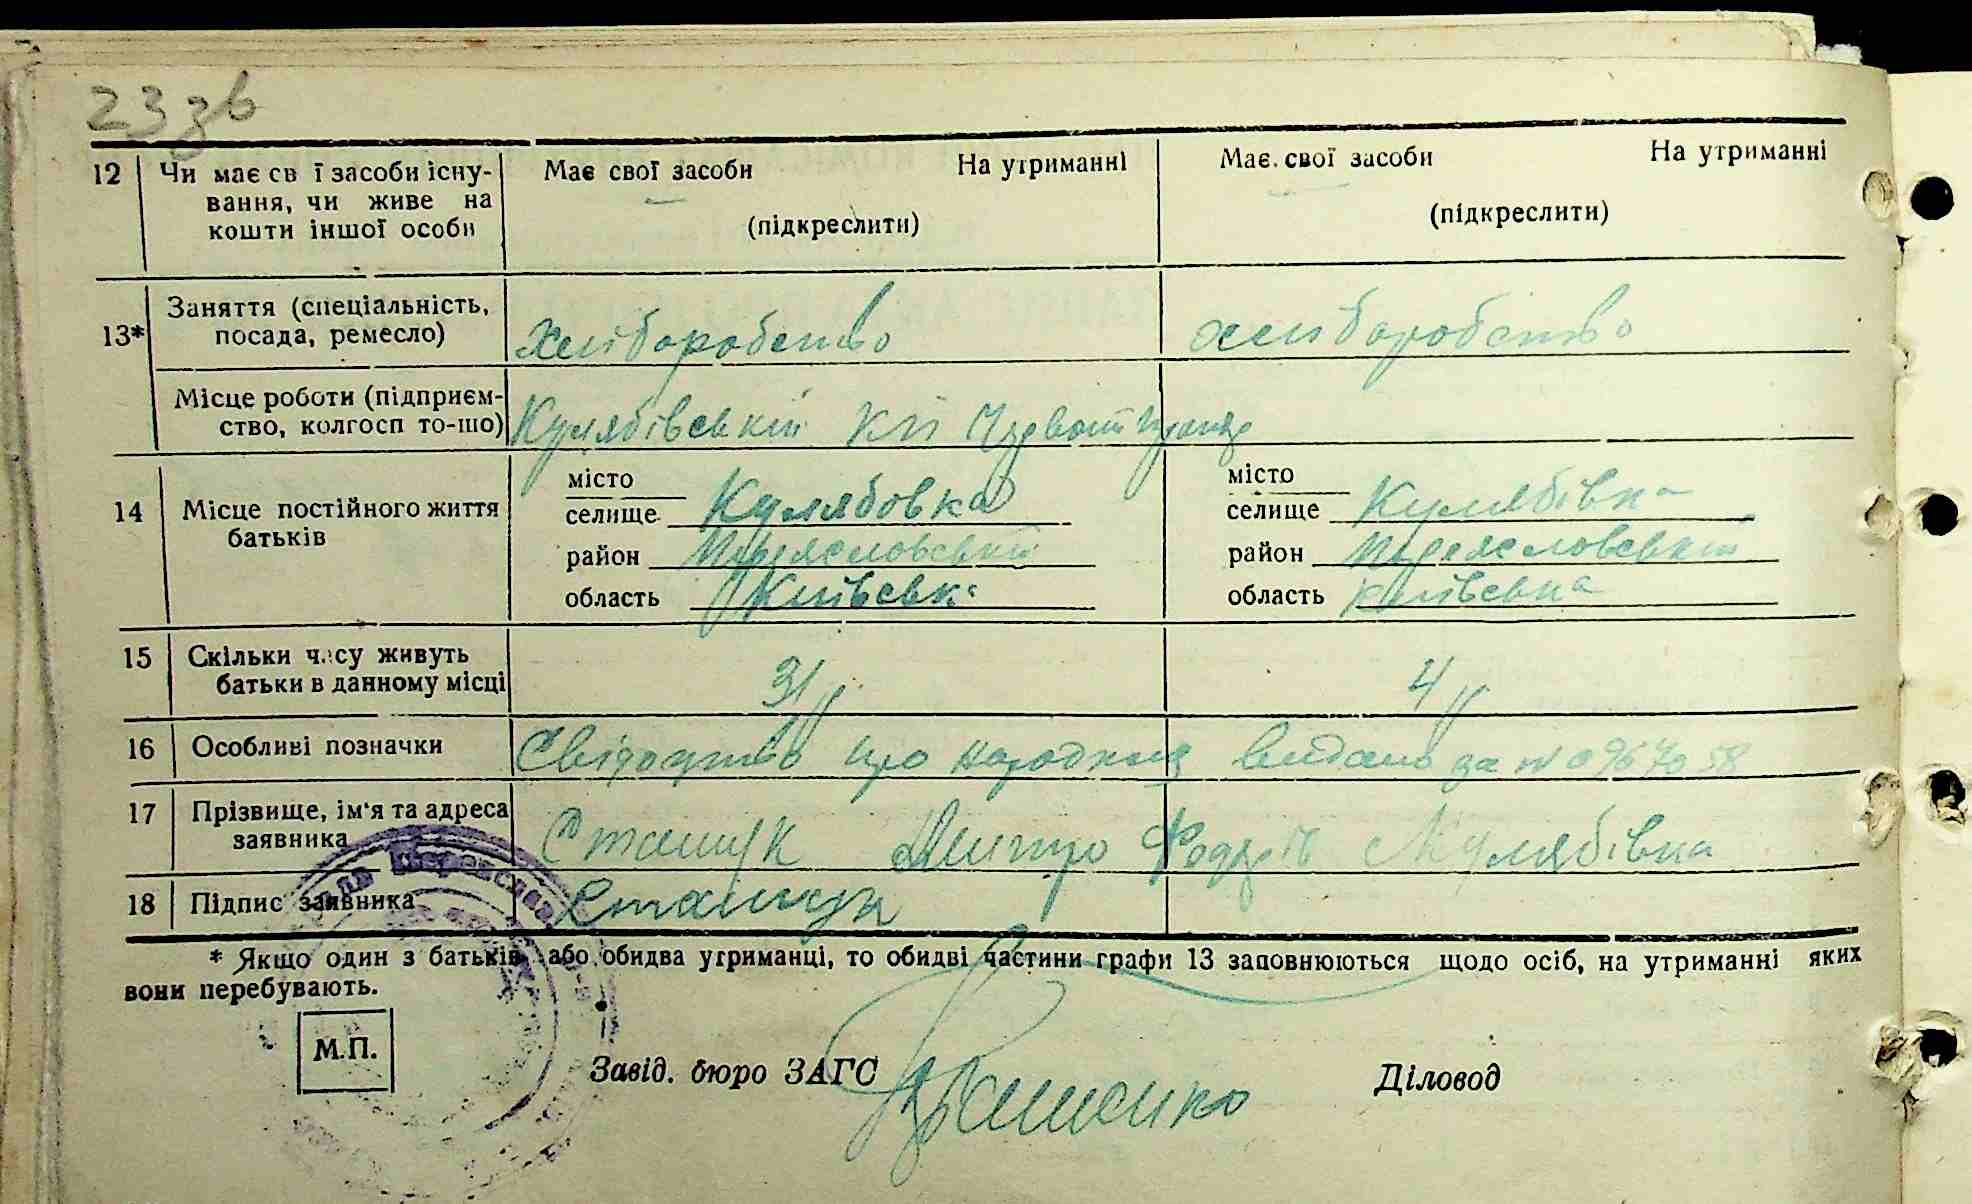 23 зв
12 Чи має св ї засоби існу- Має свої засоби На утриманні Має свої засоби На утриманні
вання, чи живе на (підкреслити) (підкреслити)
кошти іншої особи
13* Заняття (спеціальність, хліборобство хліборобство
посада, ремесло)
Місце роботи (підприєм- Кулябівський
ство, колгосп то-що)
14 Місце постійного життя місто Кулябовка місто Кулябівка
батьків селище селище
район район
область Київська область Київська
15 Скільки часу живуть 31 р 4 р
батьки в данному місці
16 Особливі позначки Свідоцтво про народження видано за № 0967058
17 Прізвище, ім'я та адреса Сташук Дмитро Кулябівка
заявника
18 Підпис заявника Сташук
* Якщо один з батьків або обидва утриманці, то обидві частини графи 13 заповнюються щодо осіб, на утриманні яких
вони перебувають.
М.П. Завід. бюро ЗАГС Діловод